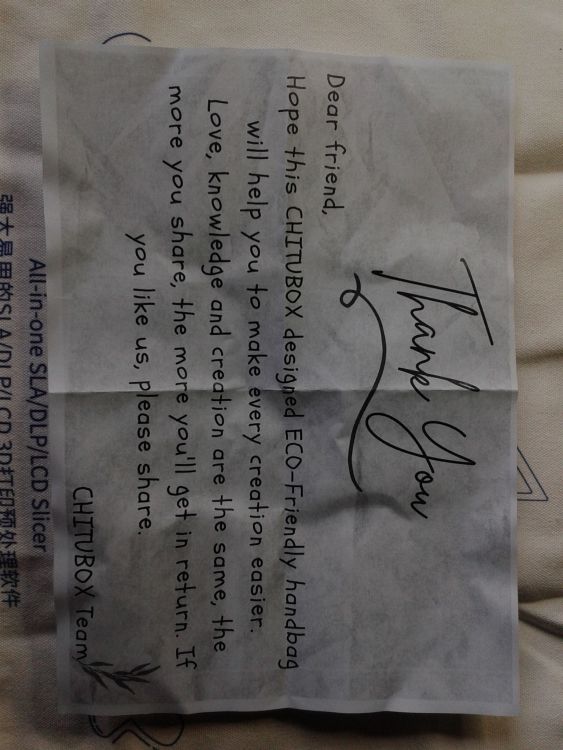 Thank You
Dear friend,
Hope this CHITUBOX designed ECO-Friendly handbag
will help you to make every creation easier.
Love, knowledge and creation are the same, the
more you share, the more you'll get in return. If
you like us, please share.
CHITUBOX Team
All-in-one SLA/DLP/LCD Slicer
强大易用的SLA/DLP/LCD 3D打印预处理软件